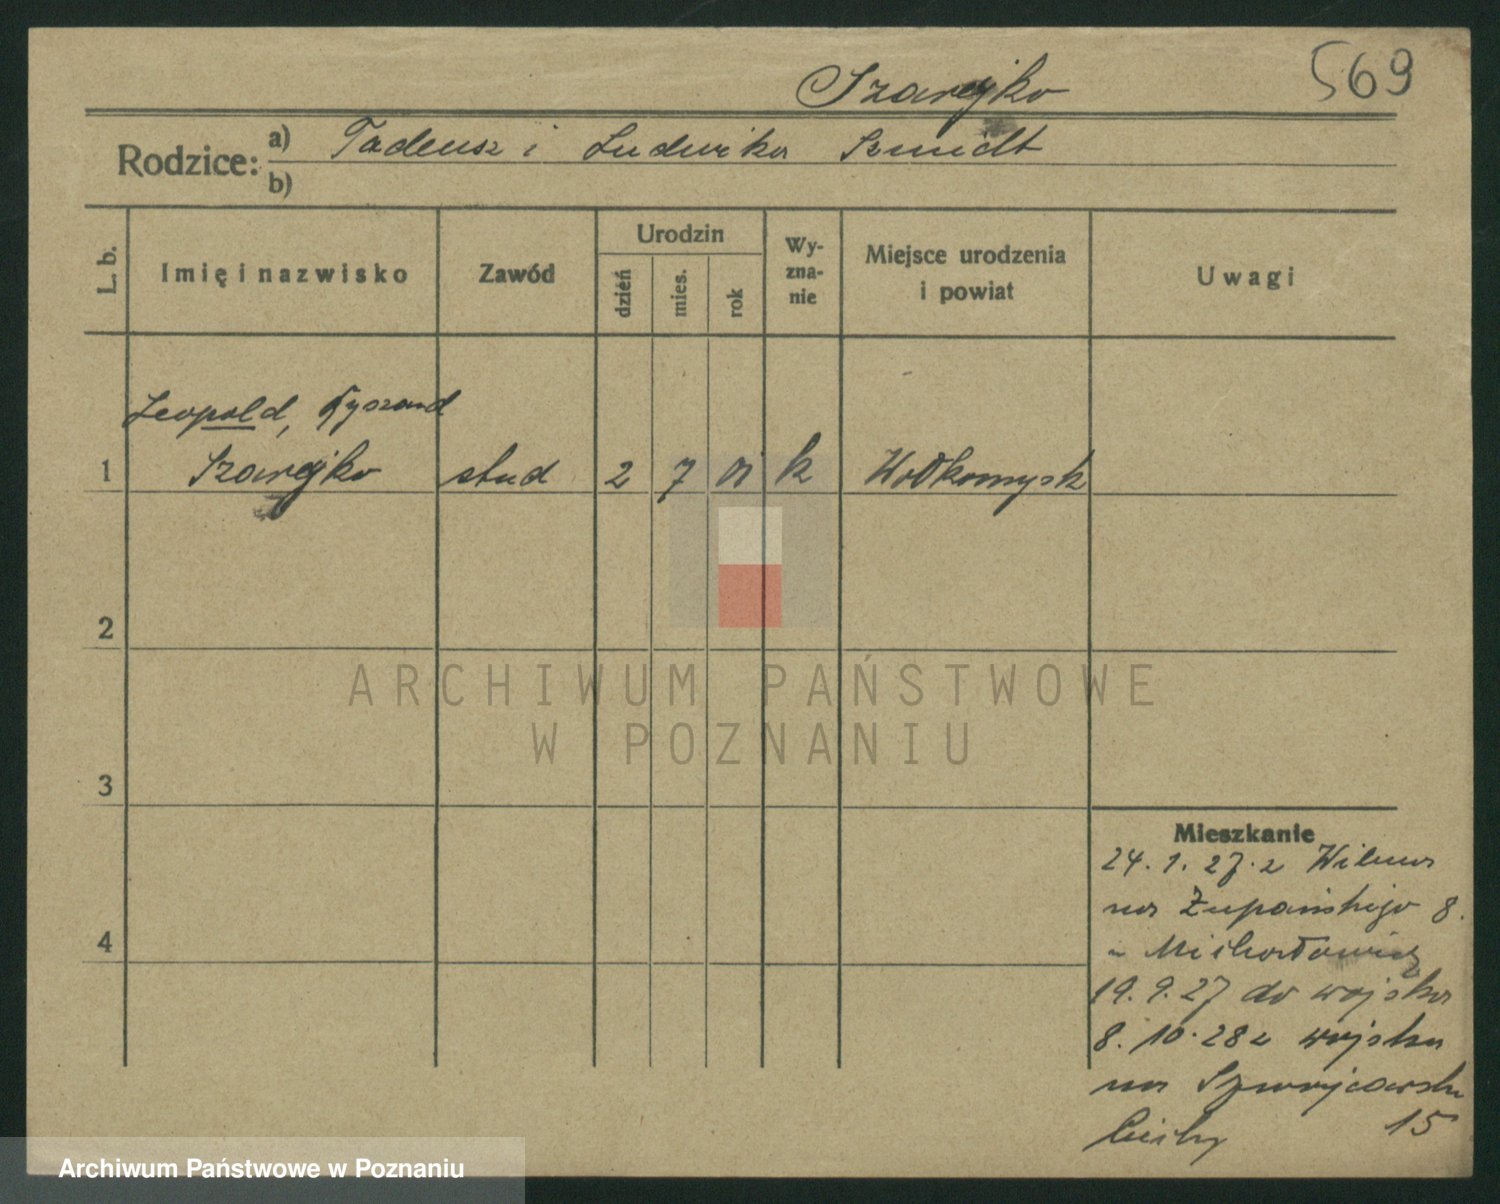 569
Szarejko
Rodzice: a) Tadeusz i Ludwika Szmidt
b)
L. b.
Imię i nazwisko
Zawód
Urodzin
dzień
mies.
rok
Wy-
zna-
nie
Miejsce urodzenia
i powiat
Uwagi
Leopold, Ryszard
1 Szarejko stud 2 7 01 k Wołkowysk
2
3
4
ARCHIWUM PAŃSTWOWE
W POZNANIU
Mieszkanie
24. 1. 27. z Wilna
na Żupańskiego 8.
u Michałowicz
19. 9. 27 do wojska
8. 10. 28 z wojska
na Szwajcarska
15
Cichy
Archiwum Państwowe w Poznaniu